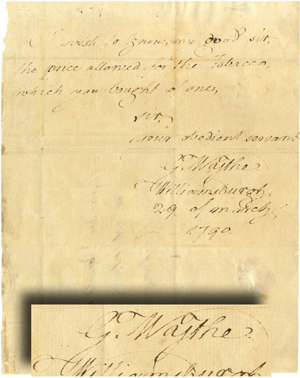 I wish to know, my good sir,
the price allowed for the Tobacco,
which you bought of ones,
sir,
your obedient servant
G. Wythe
Williamsburgh
29 of march,
1790.
G. Wythe
Williamsburgh